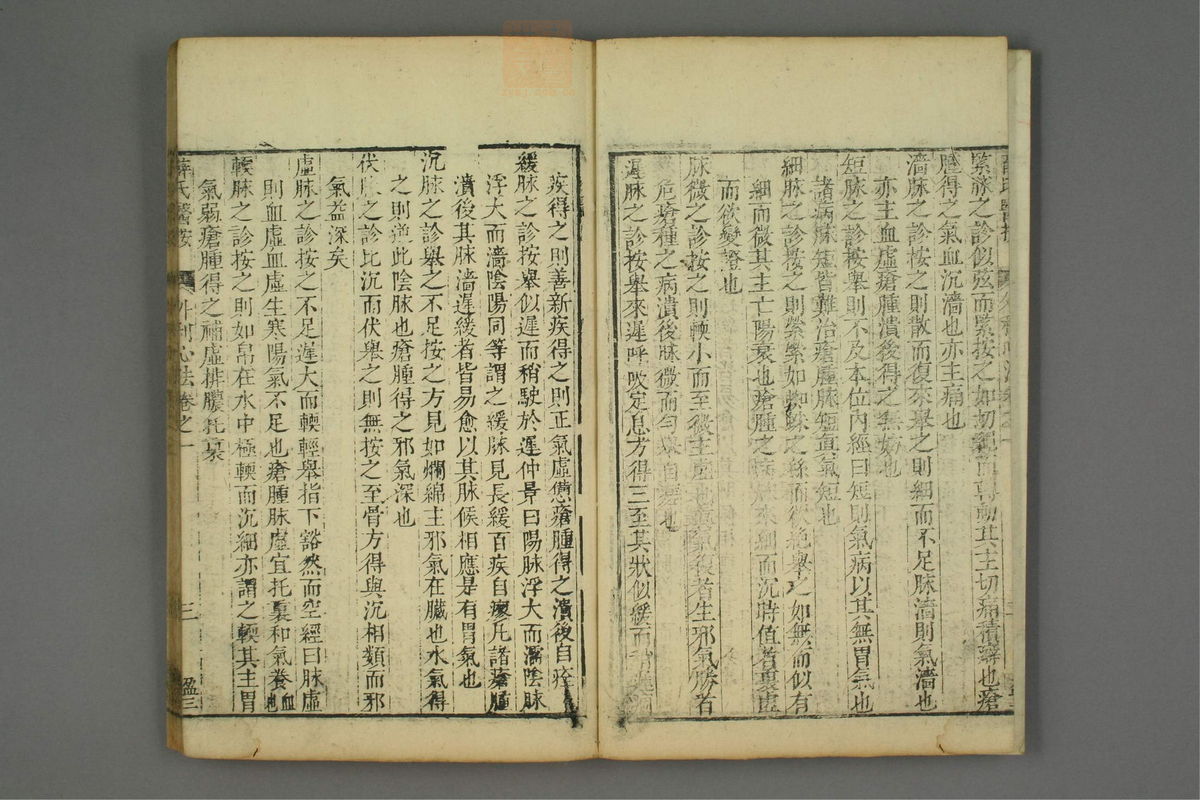 緊脉之診似弦而緊按之如切繩
主切痛積癖也瘡
腫得之氣血沉濇也亦主痛也
濇脉之診按之則散而復來舉之則細而不足脉濇則氣濇也
亦主血虛瘡腫潰後得之無妨也
短脉之診按舉則不及本位內經曰短則氣病以其無胃氣也
諸病脉短皆難治瘡腫脉短真氣短也
細脉之診按之則縈縈如蜘蛛之絲而欲絕舉之如無而似有
細而微其主亡陽衰也瘡腫之病脉來細而沉時值者裏虛
而欲變證也
脉微之診按之則輭小而至微主虛也
者生邪氣勝者
危瘡種之病潰後脉微而勻舉自
也
遲脉之診按舉來遲呼吸定息方得三至其狀似緩而
疾得之則善新疾得之則正氣虛憊瘡腫得之潰後自痊
緩脉之診按舉似遲而稍駛於遲仲景曰陽脉浮大而濡陰脉
浮大而濇陰陽同等謂之緩脉見長緩百疾自瘳凡諸瘡腫
潰後其脉濇遲緩者皆易愈以其脉候相應是有胃氣也
沉脉之診舉之不足按之方見如爛綿主邪氣在臟也水氣得
之則逆此陰脉也瘡腫得之邪氣深也
伏脉之診比沉而伏舉之則無按之至骨方得與沉相類而邪
氣益深矣
虛脉之診按之不足遲大而輭輕舉指下豁然而空經曰脉虛
則血虛血虛生寒陽氣不足也瘡腫脉虛宜托裏和氣養血也
輭脉之診按之則如帛在水中極輭而沉細亦謂之輭其主胃
氣弱瘡腫得之補虛排膿托裏
薛氏醫按 外科心法卷之一 三 盈三